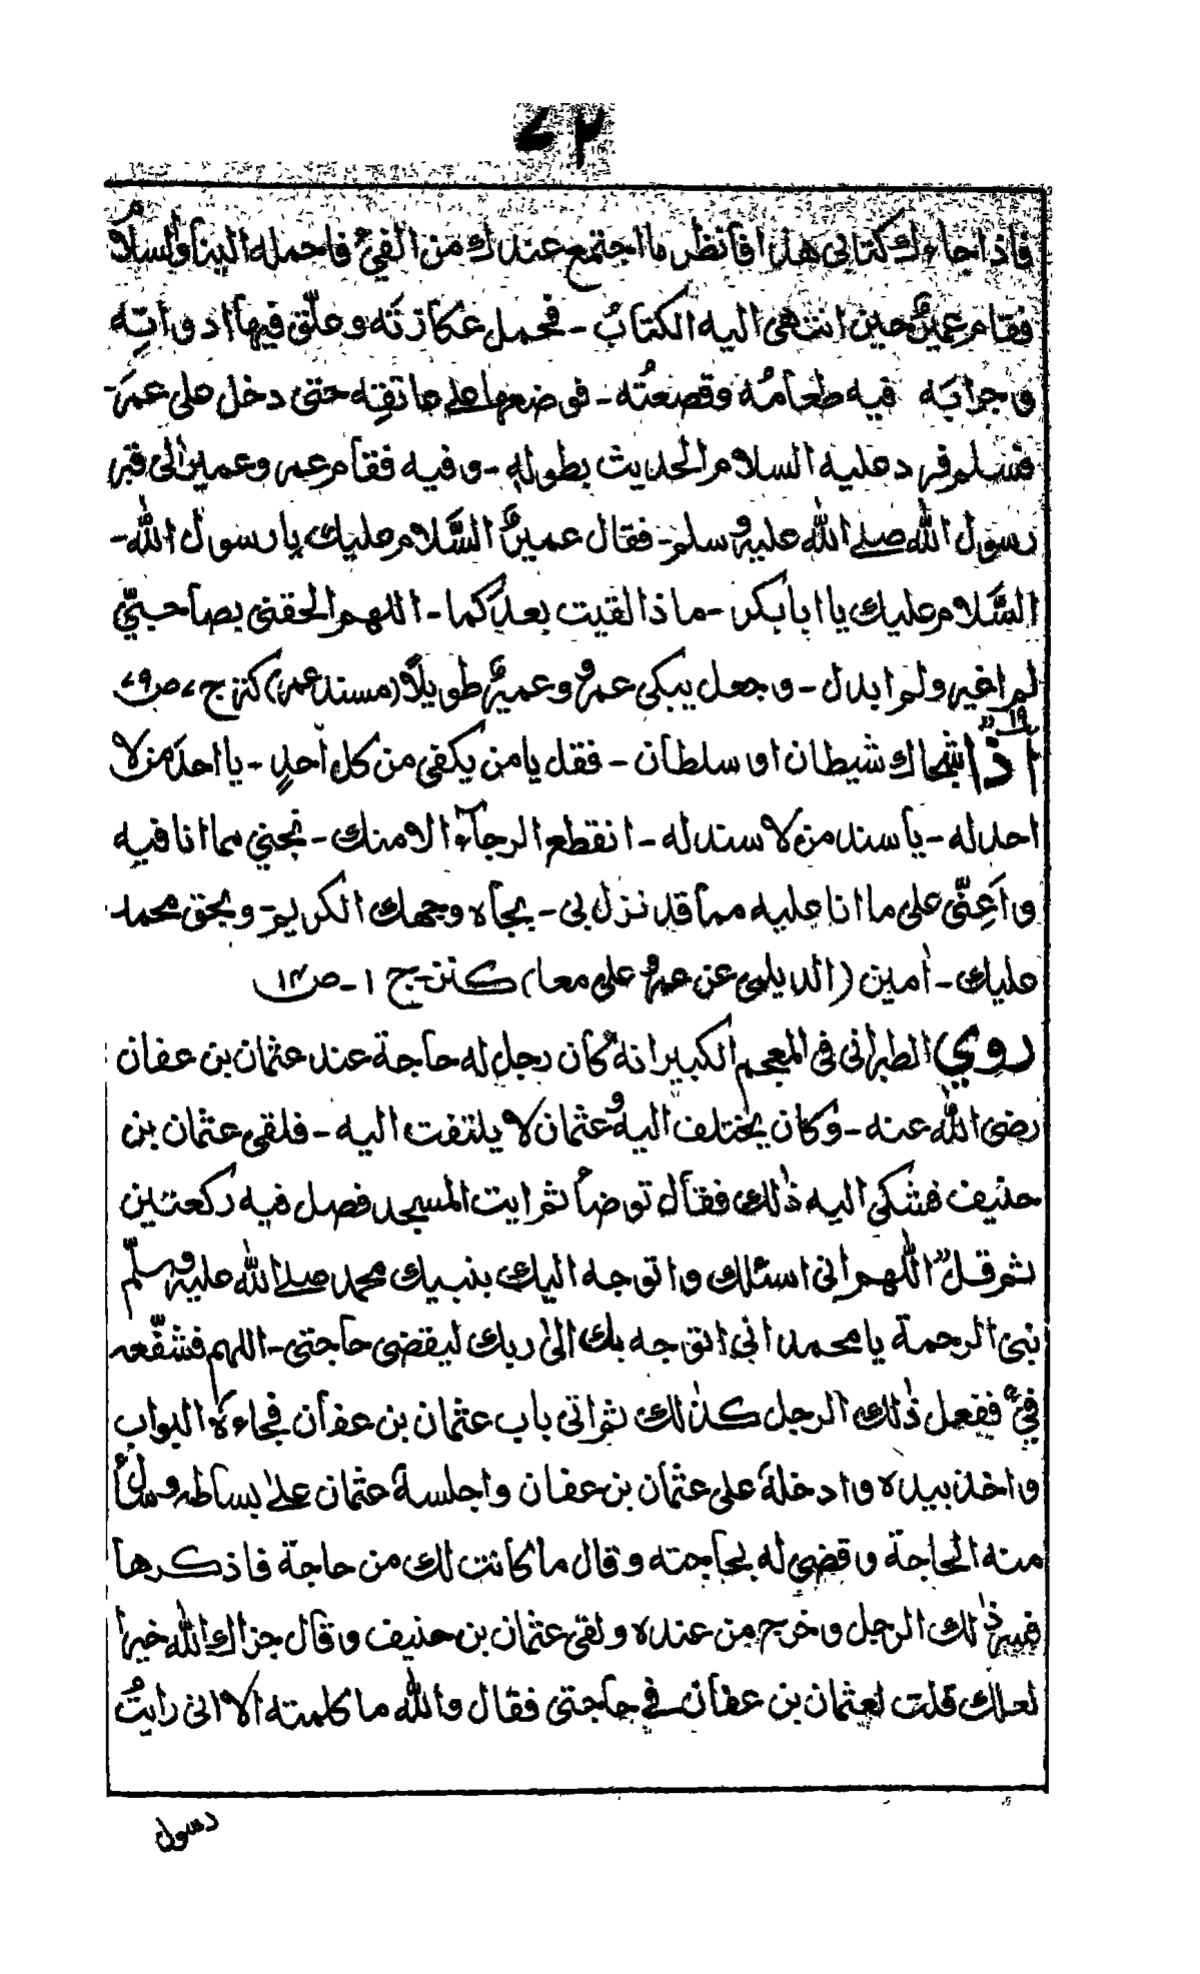 فاذا جاءك كتابى هذا فانظر ما اجتمع عندك من الفئ فاحمله الينا والسلام
فقام عميرٌ حين انتهى اليه الكتابُ - فحمل عكازتَه وعلّق فيها ادواتِه
وجرابَه فيه طعامُه وقصعتُه - فوضعها على عاتقِه حتى دخل على عمرَ -
فسلم فرد عليه السلام الحديث بطولهٖ - وفيه فقام عمر وعمير الى قبر
رسول الله صلے الله عليه وسلم - فقال عميرٌ السَّلام عليك يا رسول الله -
السَّلام عليك يا ابا بكر - ماذا لقيت بعدكما - اللهم الحقنى بصاحبىّ
لم اغير ولم ابدل - وجعل يبكى عمرؓ وعميرؓ طويلاً (مسند عمر) كنز ج ٧ ص ٧٩
١٩
اذا شجاك شيطان او سلطان - فقل يا من يكفى من كل احدٍ - يا احدَ من لا
احد له - يا سند من لا سند له - انقطع الرجآء الا منك - نجنى مما انا فيه
واَعِنّى على ما انا عليه مما قد نزل بى - بجاه وجهك الكريم - وبحق محمد
عليك - اٰمين (الديلمى عن عمرؓ على معا) كنز ج ١ - ص ١٢
روى الطبرانى فى المعجم الكبير انهٗ كان رجل له حاجة عند عثمان بن عفان
رضى الله عنه - وكان يختلف اليه وعثمان لا يلتفت اليه - فلقى عثمان بن
حنيف فشكى اليه ذٰلك فقال توضأ ثم ايت المسجد فصل فيه ركعتين
ثم قل "اللهم انى اسئلك واتوجه اليك بنبيك محمد صلے الله عليه وسلّم
نبى الرحمة يا محمد انى اتوجه بك الىٰ ربك ليقضى حاجتى - اللهم فشفّعه
فىّ" ففعل ذٰلك الرجل كذٰلك ثم اتى باب عثمان بن عفان فجاءهٗ البواب
واخذ بيده وادخلهٗ على عثمان بن عفان واجلسهٗ عثمان علےٰ بساطه وسأل
منه الحاجة وقضى له بحاجته وقال ما كانت لك من حاجة فاذكرها
فسر ذٰلك الرجل وخرج من عنده ولقى عثمان بن حنيف وقال جزاك الله خيرا
لعلك قلت لعثمان بن عفان فے حاجتى فقال والله ما كلمته الا انى رايتُ
رسول